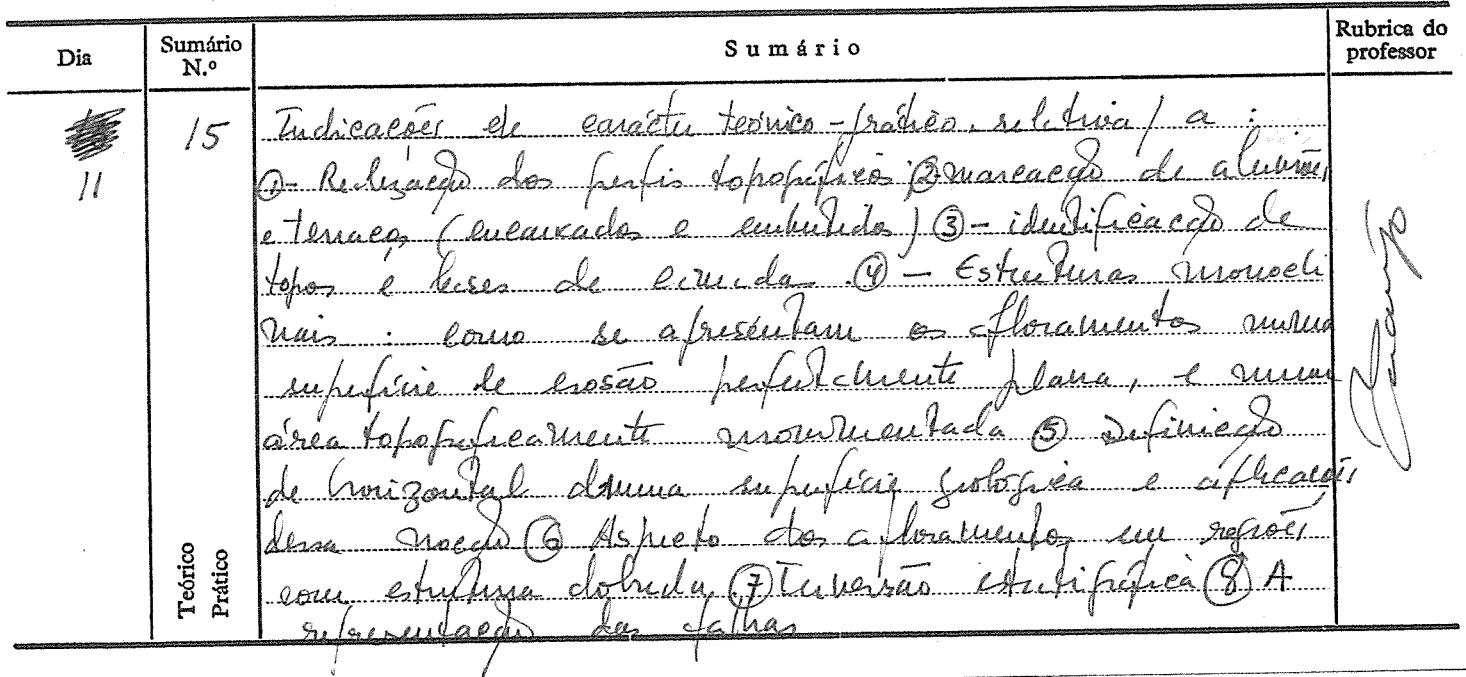 Dia
Sumário N.º
Sumário
Rubrica do professor
11
15
Teórico
Prático
Indicações de carácter teórico-prático relativa/ a :
①- Realização dos perfis topográficos ② marcação de aluviões
e terraços (encaixados e embutidos) ③ - identificação de
topos e bases de camada. ④ - Estruturas monocli
nais : como se apresentam os afloramentos numa
superfície de erosão perfeitamente plana, e numa
área topograficamente movimentada ⑤ Definição
de horizontal duma superfície geológica e aplicações
dessa noção ⑥ Aspecto dos afloramentos em regiões
com estrutura dobrada ⑦ Inversão estratigráfica ⑧ A
representação das falhas